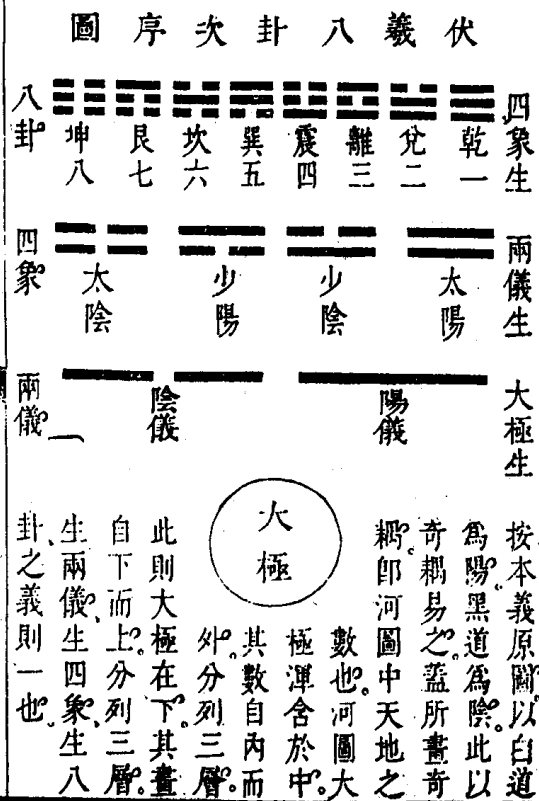 伏羲八卦次序圖
四象生
乾一
兌二
離三
震四
巽五
坎六
艮七
坤八
八卦。
兩儀生
太陽
少陰
少陽
太陰
四象。
大極生
陽儀
陰儀
兩儀。
大極
按本義原圖。以白道
爲陽。黑道爲陰。此以
奇耦易之。蓋所畫奇
耦。卽河圖中天地之
數也。河圖大
極渾含於中。
其數自內而
外。分列三層。
此則大極在下。其畫
自下而上。分列三層。
生兩儀。生四象。生八
卦之義則一也。